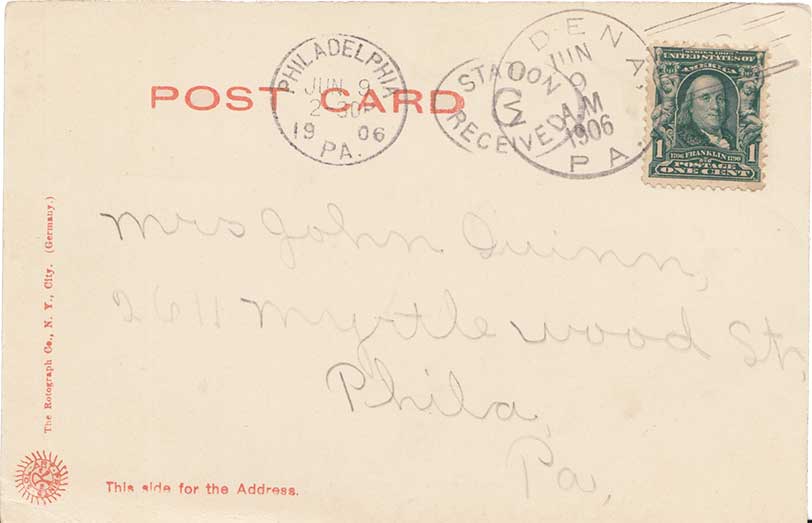 POST CARD
PHILADELPHIA
JUN 9
2-30P
1906
PA.
STATION
RECEIVED
DENA,
JUN
9
A.M
1906
PA.
SERIES 1902
UNITED STATES OF
AMERICA
1 1
1706 FRANKLIN 1790
POSTAGE
ONE CENT
Mrs John Quinn,
2611 Myrtlewood St,
Phila,
Pa,
The Rotograph Co., N. Y., City. (Germany.)
This side for the Address.